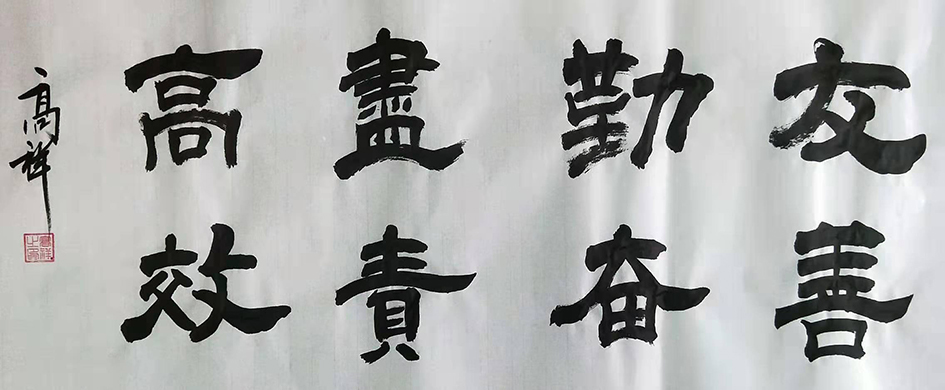 友善
勤奋
盡責
高效
高祥